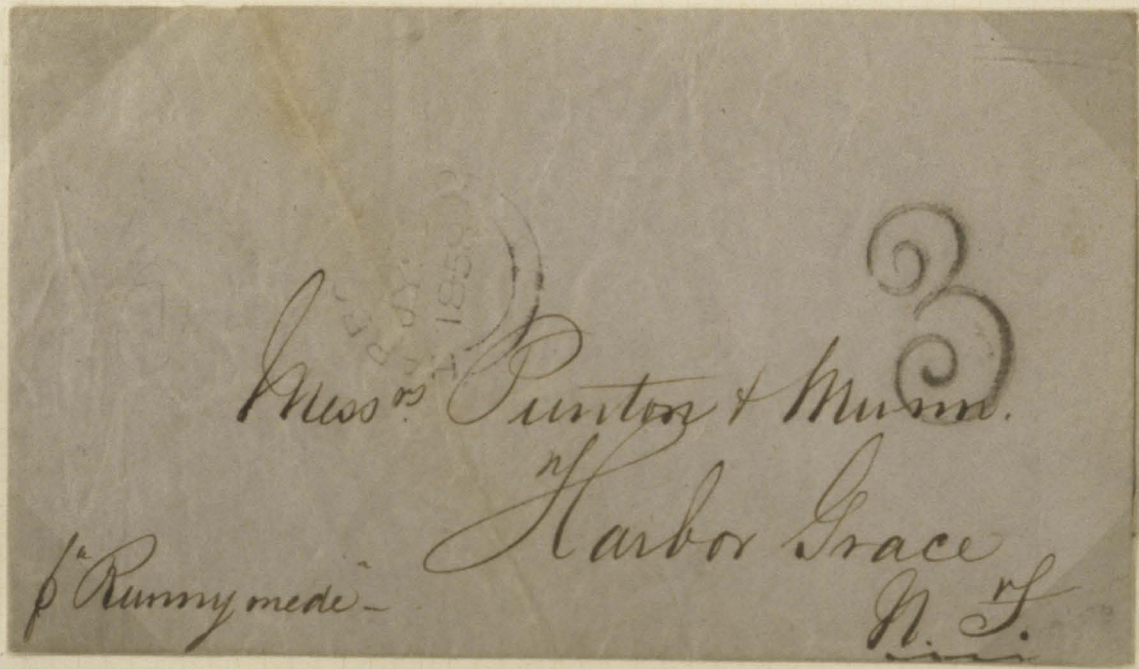 1858
3
Messrs. Punton & Munn.
Harbor Grace
N. F.
p "Runnymede" -